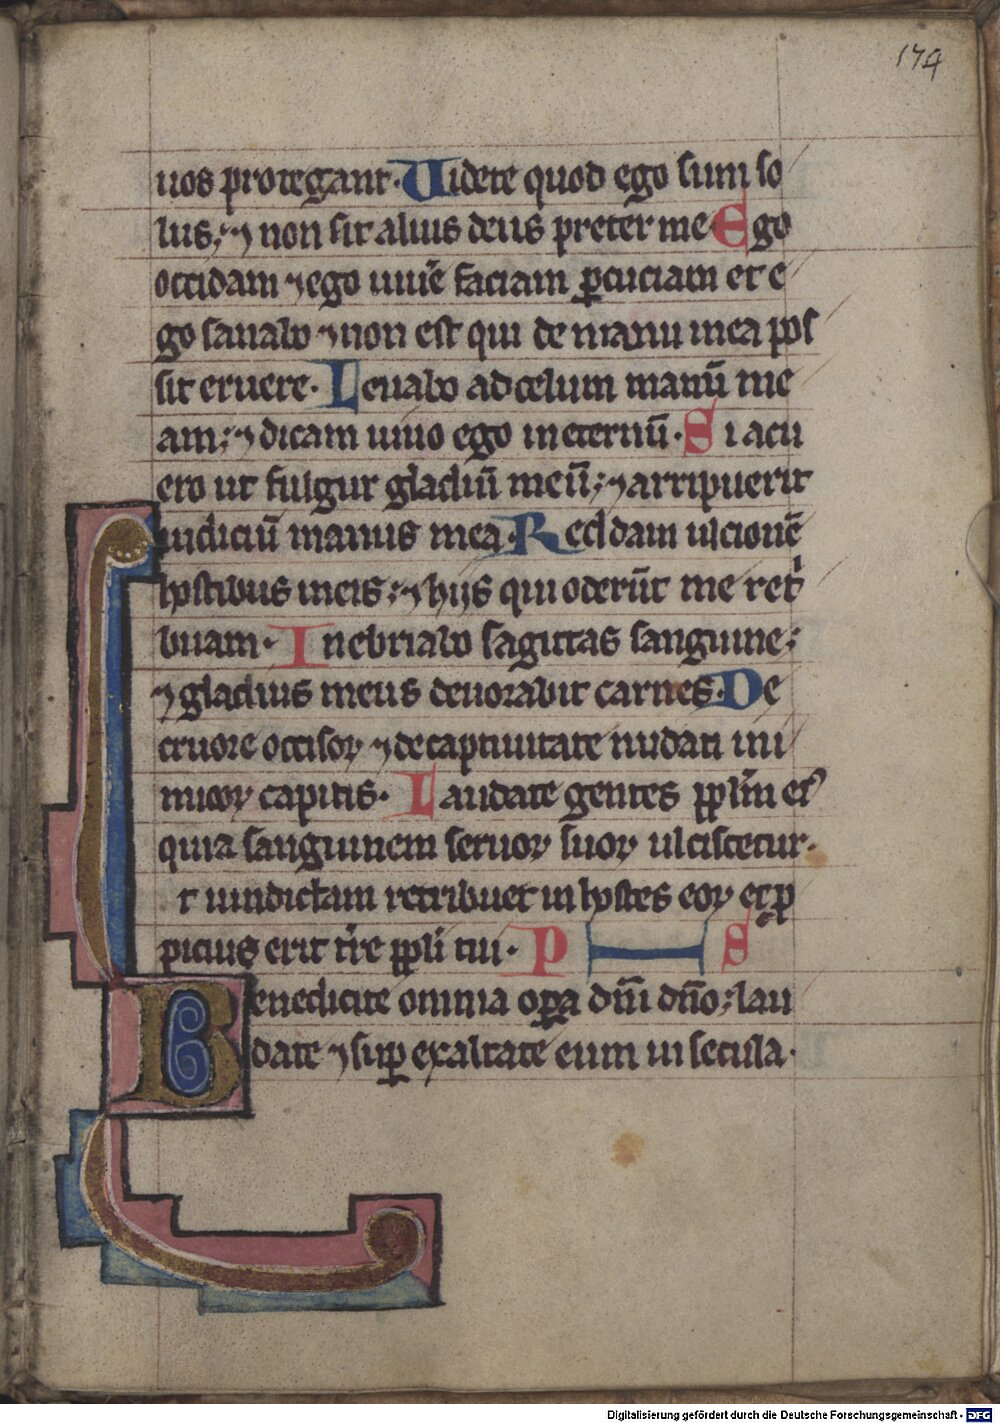 174
uos protegant. Uidete quod ego sum so
lus; ⁊ non sit alius deus preter me. Ego
occidam ⁊ ego uiue̅ faciam ꝑcuciam et e
go sanabo ⁊ non est qui de manu mea pos
sit eruere. Leuabo ad celum manu̅ me
am; ⁊ dicam uiuo ego in eternu̅. Si acu
ero ut fulgur gladiu̅ meu̅; ⁊ arripuerit
iudiciu̅ manus mea. Reddam ulcione̅
hostibus meis; ⁊ hijs qui oderu̅t me ret̾
buam. Inebriabo sagittas sanguine;
⁊ gladius meus deuorabit carnes. De
cruore occisoꝝ ⁊ de captiuitate nudati ini
micoꝝ capitis. Laudate gentes ppl̅m ei᷒
quia sanguinem seruoꝝ suoꝝ ulciscetur.
t uindictam retribuet in hostes eoꝝ et ꝓ
picius erit t̾re ppl̅i tui. P S
Benedicite omnia oꝑa dn̅i dn̅o; lau
date ⁊ suꝑ exaltate eum in secula.
Digitalisierung gefördert durch die Deutsche Forschungsgemeinschaft - DFG